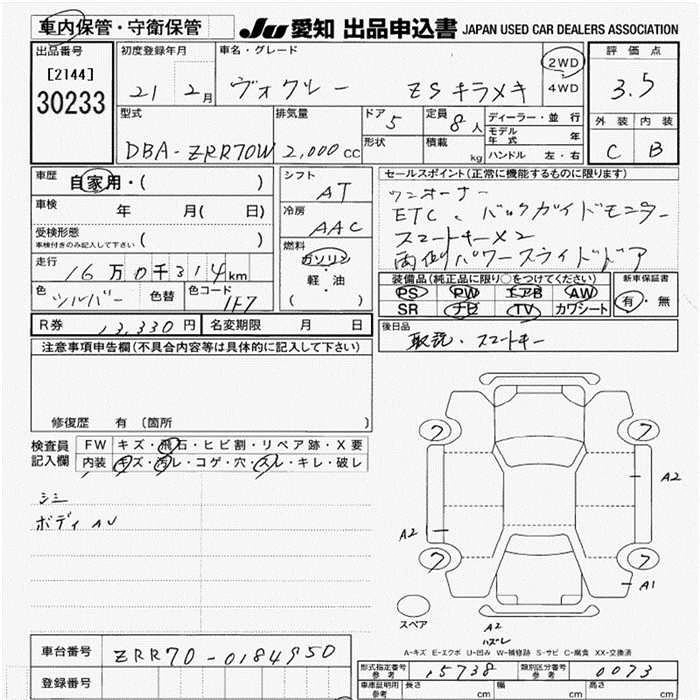 車内保管・守衛保管
JU 愛知 出品申込書 JAPAN USED CAR DEALERS ASSOCIATION
出品番号
[2144]
30233
初度登録年月
21 2月
車名・グレード
ヴォクシー ZSキラメキ
2WD
4WD
評価点
3.5
外装 内装
C B
型式
DBA-ZRR70W
排気量
2,000cc
ドア
5
形状
定員
8人
積載
kg
ディーラー・並行
モデル年式 年
ハンドル 左・右
車歴
自家用・( )
車検
年 月( 日)
受検形態
車検付きのみ記入して下さい ( )
走行
16万0千314km
色
シルバー
色替
色コード
1F7
シフト
AT
冷房
AAC
燃料
ガソリン
・
軽・油
( )
セールスポイント(正常に機能するものに限ります)
ワンオーナー
ETC、バックガイドモニター
スマートキー×2
両側パワースライドドア
装備品(純正品に限り○をつけてください)
PS PW エアB AW
SR ナビ TV カワシート
新車保証書
有・無
後日品
取説・スマートキー
R券 13,330円
名変期限 月 日
注意事項申告欄(不具合内容等は具体的に記入して下さい)
修復歴 有〔箇所 〕
検査員
記入欄
FW キズ・飛石・ヒビ割・リペア跡・X要
内装 キズ・汚レ・コゲ・穴・スレ・キレ・破レ
シミ
ボディAU
7 7
A2
A2
7 7
A1
スペア
A2
ハズレ
A-キズ E-エクボ U-凹み W-補修跡 S-サビ C-腐食 XX-交換済
車台番号
ZRR70-0184950
登録番号
形式指定番号
参考
15738
類別区分番号
参考
0073
車庫証明用
参考
長さ cm
幅 cm
高さ cm